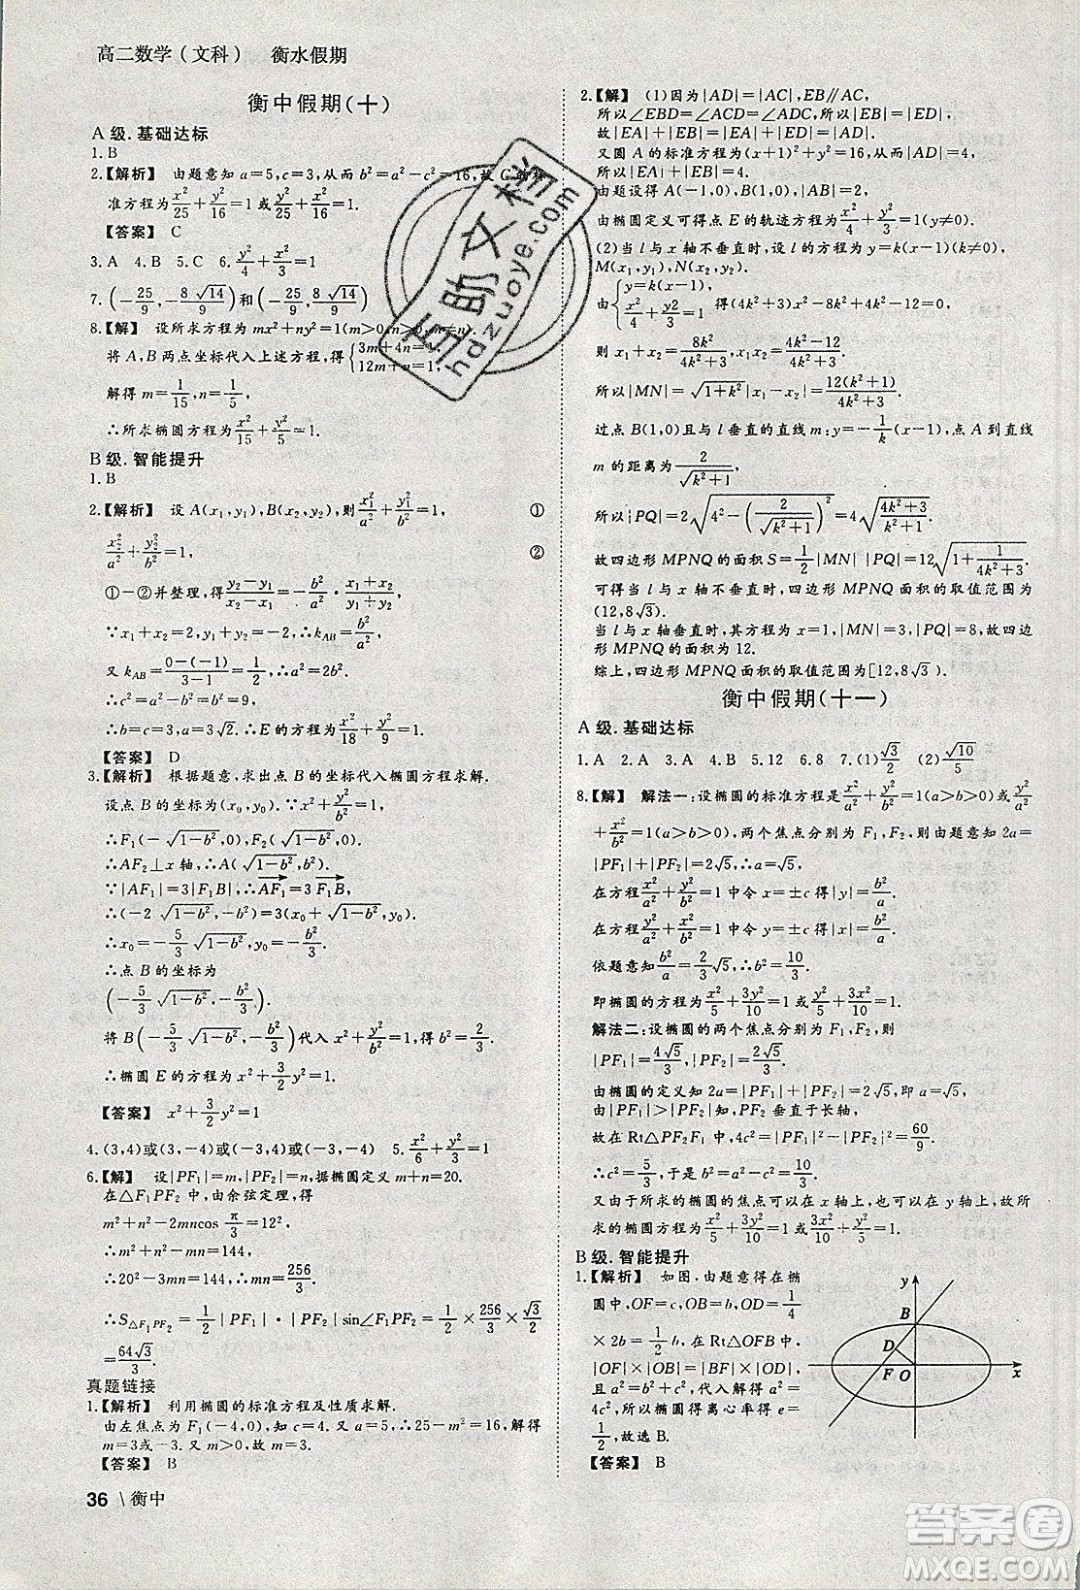 高二数学(文科) 衡水假期
衡中假期(十)
A 级.基础达标
1.B
2.【解析】 由题意知 a=5,c=3,从而 b²=a²-c²=16,故
准方程为 x²/25+y²/16=1 或 y²/25+x²/16=1.
【答案】 C
3.A 4.B 5.C 6.y²/4+x²/3=1
7.(-25/9,-8√14/9)和(-25/9,8√14/9)
8.【解】 设所求方程为 mx²+ny²=1(m>0,n>0,m≠n).
将 A,B 两点坐标代入上述方程,得{3m+4n=1, 12m+n=1,
解得 m=1/15,n=1/5,
∴所求椭圆方程为 x²/15+y²/5=1.
B 级.智能提升
1.B
2.【解析】 设 A(x₁,y₁),B(x₂,y₂),则 x₁²/a²+y₁²/b²=1, ①
x₂²/a²+y₂²/b²=1, ②
①-②并整理,得 (y₂-y₁)/(x₂-x₁)=-b²/a²·(x₁+x₂)/(y₁+y₂).
∵x₁+x₂=2,y₁+y₂=-2,∴k_AB=b²/a².
又 k_AB=(0-(-1))/(3-1)=1/2,∴b²/a²=1/2.
∴c²=a²-b²=b²=9,
∴b=c=3,a=3√2.∴E 的方程为 x²/18+y²/9=1.
【答案】 D
3.【解析】 根据题意,求出点 B 的坐标代入椭圆方程求解.
设点 B 的坐标为(x₀,y₀).∵x²+y²/b²=1,
∴F₁(-√(1-b²),0),F₂(√(1-b²),0).
∵AF₂⊥x 轴,∴A(√(1-b²),b²).
∵|AF₁|=3|F₁B|,∴AF₁=3F₁B,
∴(-2√(1-b²),-b²)=3(x₀+√(1-b²),y₀).
∴x₀=-5/3√(1-b²),y₀=-b²/3.
∴点 B 的坐标为
(-5/3√(1-b²),-b²/3).
将 B(-5/3√(1-b²),-b²/3)代入 x²+y²/b²=1,得 b²=2/3.
∴椭圆 E 的方程为 x²+3/2y²=1.
【答案】 x²+3/2y²=1
4.(3,4)或(3,-4)或(-3,4)或(-3,-4) 5.x²/6+y²/3=1
6.【解】 设|PF₁|=m,|PF₂|=n,据椭圆定义 m+n=20.
在△F₁PF₂ 中,由余弦定理得
m²+n²-2mncos π/3=12²,
∴m²+n²-mn=144,
∴20²-3mn=144,∴mn=256/3.
∴S△F₁PF₂=1/2|PF₁|·|PF₂|sin∠F₁PF₂=1/2×256/3×√3/2
=64√3/3.
真题链接
1.【解析】 利用椭圆的标准方程及性质求解.
由左焦点为 F₁(-4,0),知 c=4.又 a=5,∴25-m²=16,解得
m=3或-3.又 m>0,故 m=3.
【答案】 B
2.【解】 (1)因为|AD|=|AC|,EB∥AC,
所以∠EBD=∠ACD=∠ADC,所以|EB|=|ED|,
故|EA|+|EB|=|EA|+|ED|=|AD|.
又圆 A 的标准方程为(x+1)²+y²=16,从而|AD|=4,
所以|EA|+|EB|=4.
由题设得 A(-1,0),B(1,0),|AB|=2,
由椭圆定义可得点 E 的轨迹方程为 x²/4+y²/3=1(y≠0).
(2)当 l 与 x 轴不垂直时,设 l 的方程为 y=k(x-1)(k≠0),
M(x₁,y₁),N(x₂,y₂).
由{y=k(x-1), x²/4+y²/3=1 得(4k²+3)x²-8k²x+4k²-12=0,
则 x₁+x₂=8k²/(4k²+3),x₁x₂=(4k²-12)/(4k²+3).
所以|MN|=√(1+k²)|x₁-x₂|=12(k²+1)/(4k²+3).
过点 B(1,0)且与 l 垂直的直线 m:y=-1/k(x-1),点 A 到直线
m 的距离为 2/√(k²+1),
所以|PQ|=2√(4²-(2/√(k²+1))²)=4√((4k²+3)/(k²+1)).
故四边形 MPNQ 的面积 S=1/2|MN||PQ|=12√(1+1/(4k²+3)).
可得当 l 与 x 轴不垂直时,四边形 MPNQ 面积的取值范围为
(12,8√3).
当 l 与 x 轴垂直时,其方程为 x=1,|MN|=3,|PQ|=8,故四边
形 MPNQ 的面积为 12.
综上,四边形 MPNQ 面积的取值范围为[12,8√3).
衡中假期(十一)
A 级.基础达标
1.A 2.A 3.A 4.B 5.12 6.8 7.(1)√3/2 (2)√10/5
8.【解】 解法一:设椭圆的标准方程是 x²/a²+y²/b²=1(a>b>0)或 y²/a²
+x²/b²=1(a>b>0),两个焦点分别为 F₁,F₂,则由题意知 2a=
|PF₁|+|PF₂|=2√5,∴a=√5.
在方程 x²/a²+y²/b²=1 中令 x=±c 得|y|=b²/a.
在方程 y²/a²+x²/b²=1 中令 y=±c 得|x|=b²/a.
依题意知 b²/a=2/3√5,∴b²=10/3.
即椭圆的方程为 x²/5+3y²/10=1 或 y²/5+3x²/10=1.
解法二:设椭圆的两个焦点分别为 F₁,F₂,则
|PF₁|=4√5/3,|PF₂|=2√5/3.
由椭圆的定义知 2a=|PF₁|+|PF₂|=2√5,即 a=√5.
由|PF₁|>|PF₂|知,PF₂ 垂直于长轴,
故在 Rt△PF₂F₁ 中,4c²=|PF₁|²-|PF₂|²=60/9.
∴c²=5/3,于是 b²=a²-c²=10/3.
又由于所求的椭圆的焦点可以在 x 轴上,也可以在 y 轴上,故所
求的椭圆方程为 x²/5+3y²/10=1 或 3x²/10+y²/5=1.
B 级.智能提升
1.【解析】 如图,由题意得在椭
圆中,OF=c,OB=b,OD=1/4
×2b=1/2b,在 Rt△OFB 中,
|OF|×|OB|=|BF|×|OD|,
且 a²=b²+c²,代入解得 a²=
4c²,所以椭圆得离心率得 e=
1/2,故选 B.
【答案】 B
y
B
D
F O
x
36 \ 衡中
百助文档
hdzuoye.com
答案圈
MXQE.COM